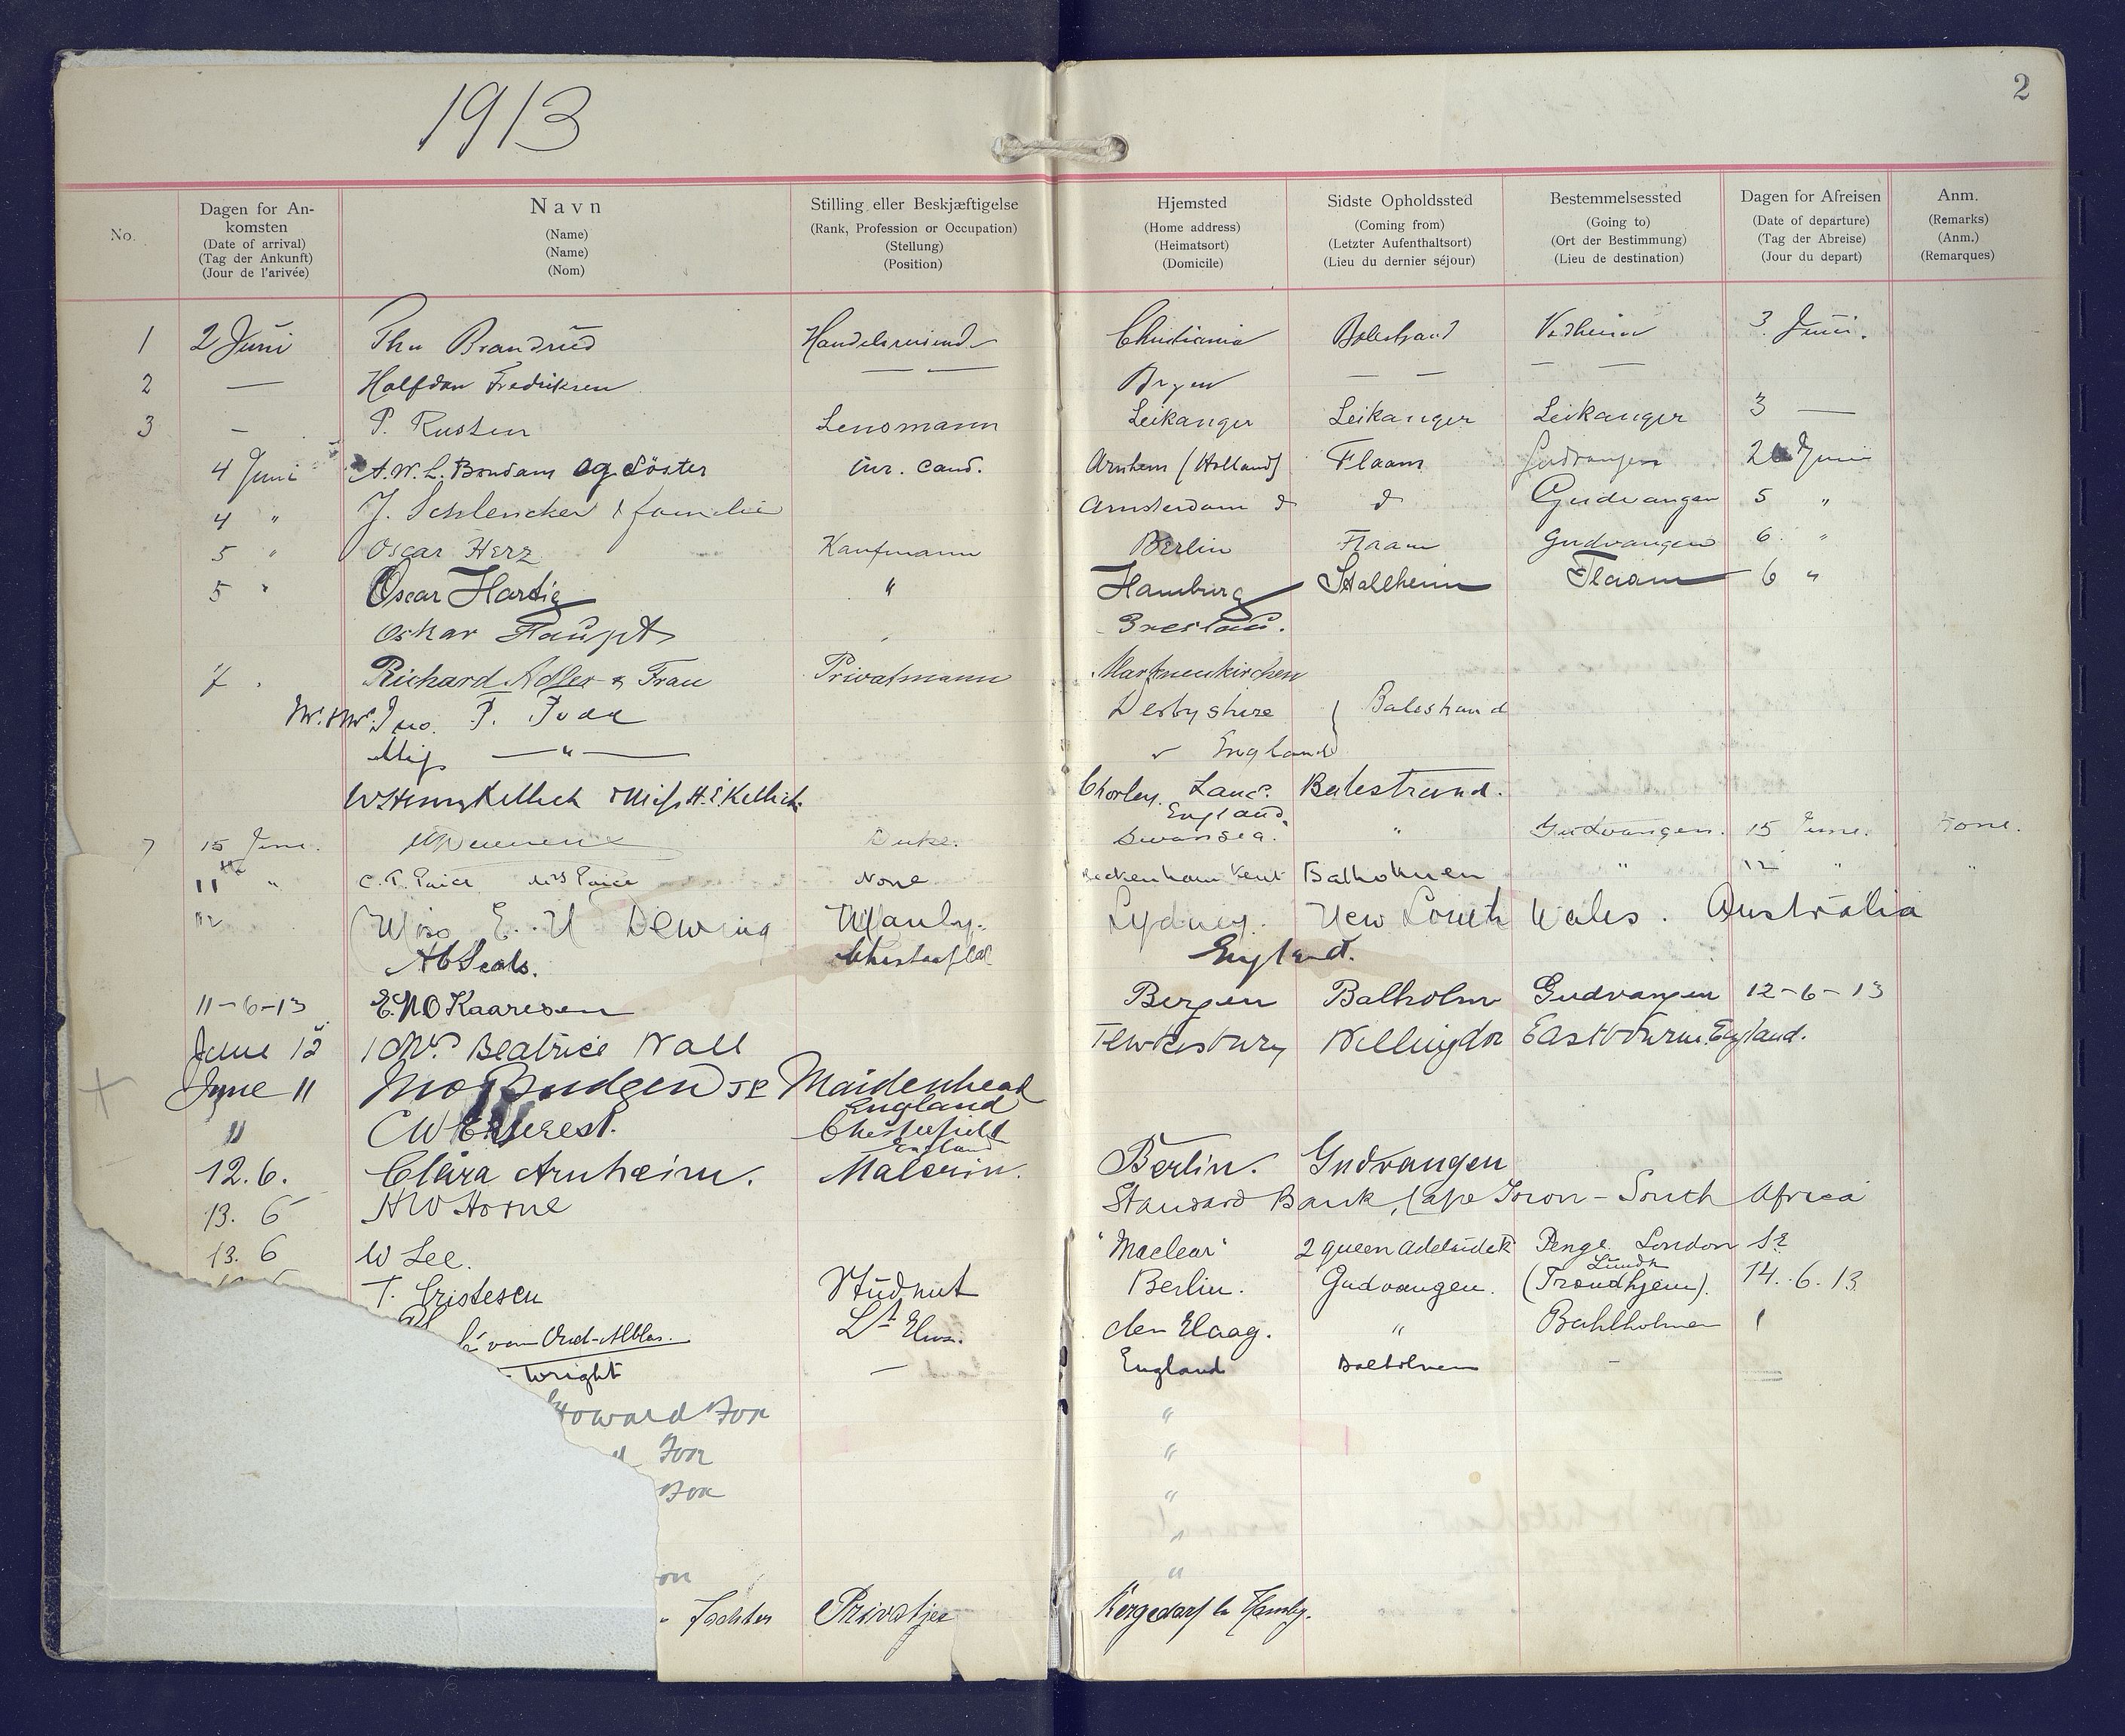 1913
2
No.
Dagen for An-
komsten
(Date of arrival)
(Tag der Ankunft)
(Jour de l'arivée)
Navn
(Name)
(Name)
(Nom)
Stilling eller Beskjæftigelse
(Rank, Profession or Occupation)
(Stellung)
(Position)
Hjemsted
(Home address)
(Heimatsort)
(Domicile)
Sidste Opholdssted
(Coming from)
(Letzter Aufenthaltsort)
(Lieu du dernier séjour)
Bestemmelsessted
(Going to)
(Ort der Bestimmung)
(Lieu de destination)
Dagen for Afreisen
(Date of departure)
(Tag der Abreise)
(Jour du depart)
Anm.
(Remarks)
(Anm.)
(Remarques)
1 2 Juni Brandrud Christiania Balestrand Vadheim 3. Juni.
2 — Halfdan Fredriksen — — Bergen — — — —
3 — P. Rusten Lensmann Leikanger Leikanger Leikanger 3 —
4 Juni A. W. L. Bondam og Söster cand. Arnhem (Holland) Flaam Gudvangen Juni
4 " J. Schlencker & familie Amsterdam d d Gudvangen 5 "
5 " Oscar Herz Kaufmann Berlin Flaam Gudvangen 6. "
5 " Oscar Hartig " Hamburg Stalheim Flaam 6 "
Oskar Haupt Breslau.
7. Richard Adler & Frau Privatmann Markneukirchen
Jno. P. Derbyshire Balestrand
Miss — " — England
W Henry Kellick & Miss H. E. Kellick Chorley. Lanc. Balestrand.
England.
7 15 June. Duke. Swansea. " Gudvangen. 15 June. None.
11th " C. T. Paice Mrs Paice None Beckenham Kent Balholmen " 12 " "
12 Miss E. Dewing Manly. Sydney. New South Wales. Australia
England.
11-6-13 Kaaresen Bergen Balholm Gudvangen 12-6-13
June 12 Beatrice Nall Tewkesbury Willingdon Eastbourne. England.
June 11 Jno Budgen JP Maidenhead
England
11 C W Everest. Chesterfield
England
12. 6. Clara Arnheim. Malerin. Berlin. Gudvangen
13. 6 H W Horne Standard Bank, Cape Town - South Africa
13. 6 W Lee. "Maclear" 2 Queen Adelaide Penge London SE
T. Cristescu Student Berlin. Gudvangen. (Trondhjem). 14. 6. 13
van Oud-Alblas. Lt den Haag. " Bahlholmen
Wright — England Balholmen -
Howard Fox "
Fox "
Fox "
"
on "
Tochter Privatier